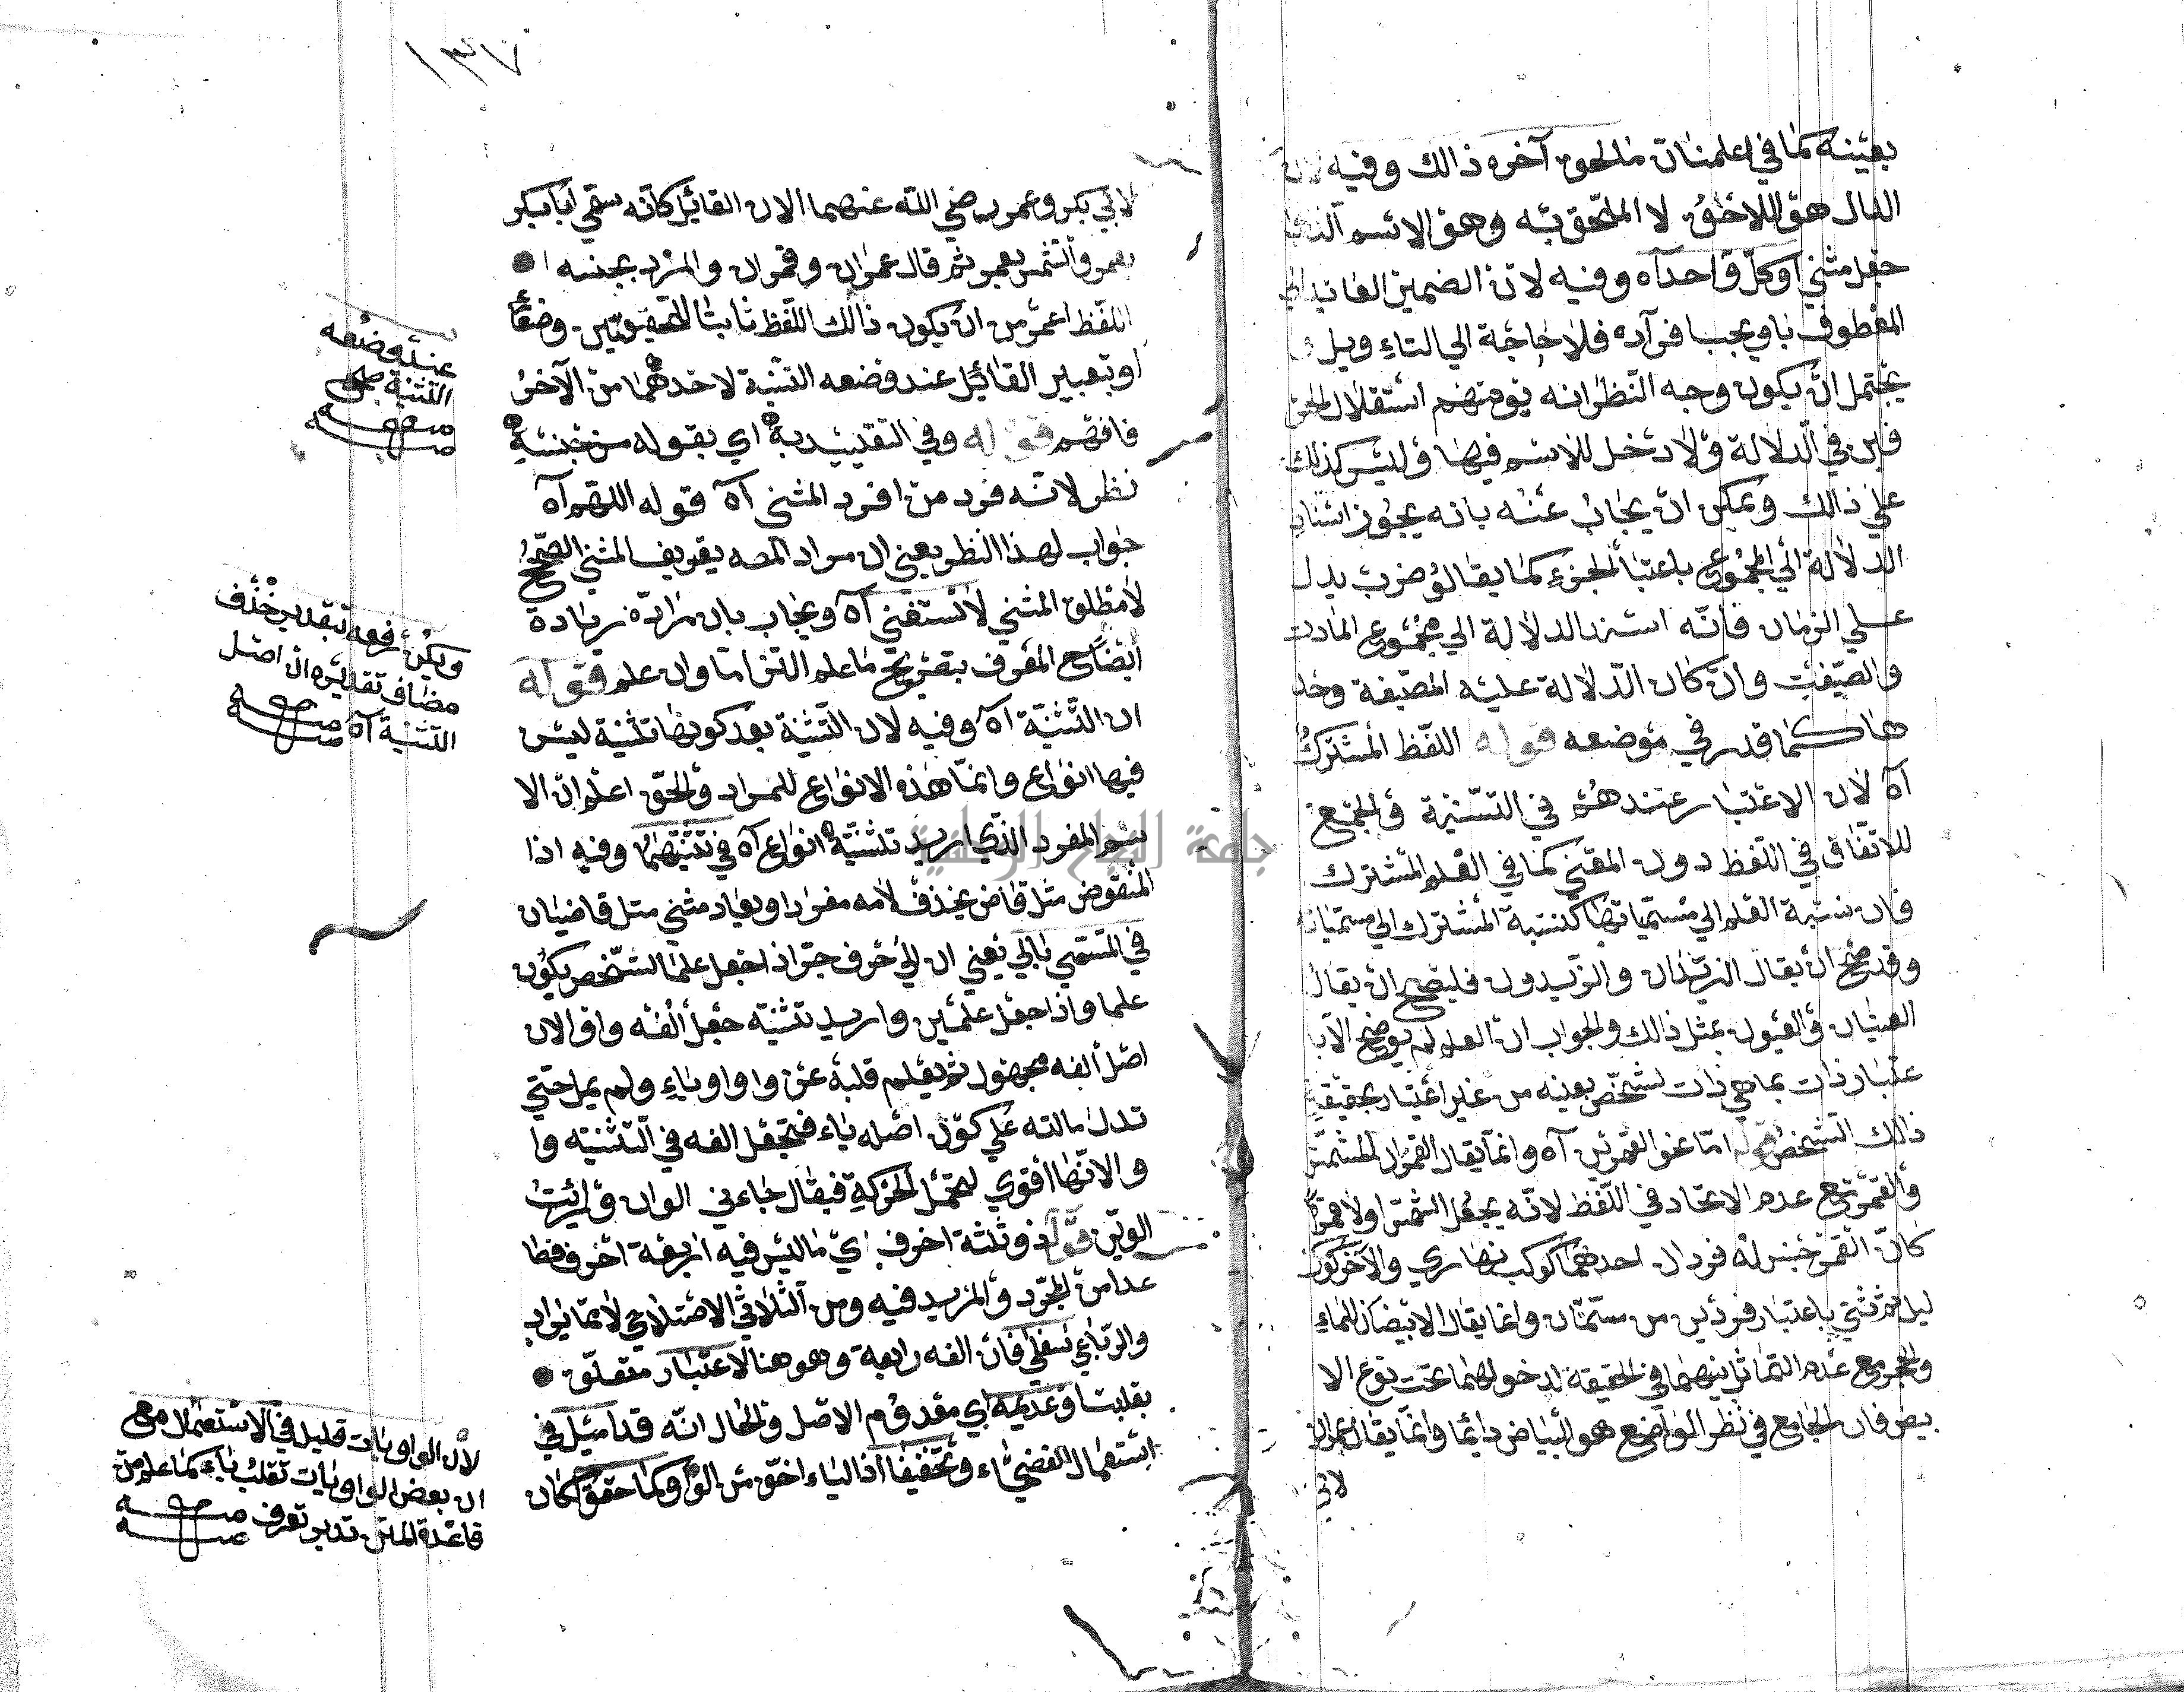 بعينه كما في اعلمنان ما لحق آخره ذالك وفيه لان
الدال هو اللاحق لا الملحق به وهو الاسم الذي
جعل مثني او كل واحد آه وفيه لان الضمير العائد الي
المعطوف باو يجب افراده فلا حاجة الي التاء ويل
يحتمل ان يكون وجه النظر انه يوهم استقلال الحر
فين في الدلالة ولا دخل للاسم فيها وليس كذلك
علي ذالك ويمكن ان يجاب عنه بانه يجوز اسناد
الدلالة الي المجموع باعتبار الجزء كما يقال ضرب يدل
علي الزمان فانه اسند الدلالة الي مجموع المادة
والصيغة وان كان الدلالة عليه الصيغة وحد
ها كما قدر في موضعه قوله اللفظ المشترك
آه لان الاعتبار عندهم في التثنية والجمع
للاتفاق في اللفظ دون المعني كما في العلم المشترك
فان نسبة العلم الي مسمياتها كنسبة المشترك الي مسمياته
وقد صح ان يقال الزيدان والزيدون فليصح ان يقال
العينان والعيون بمثل ذالك والجواب ان العلم لم يوضع الا با
عتبار ذات بما هي ذات لشخص بعينه من غير اعتبار بحقيقة
ذالك الشخص قوله اما نحو القمرين آه وانما يقال القمران للشمس
والقمر مع عدم الاتحاد في اللفظ لانه يجعل الشمس اولا قمرا
كان القمر جنس له فردان احدهما كوكب نهاري والآخر كوكب
ليل ثم ثني باعتبار فردين من مسمان وانما يقال الابيضان للماء
والخبز مع عدم التماثل بينهما في الحقيقة لدخولهما تحت نوع الا
بيض فان الجامع في نظر الواضع هو البياض دائما وانما يقال العمران
لابي
١٣٧
لابي بكر وعمر رضي الله عنهما الان القائل كانه سمي ابا بكر
بعمر والشمس بعمر ثم قال عمران وقمران والمراد بجنسه
اللفظ اعم من ان يكون ذالك اللفظ ثابتا للتحقيقين وضعا
او بتعبير القائل عند وضعه التثنية لاحدهما من الآخر
فافهم قوله وفي التقييد به اي بقوله من جنسه
نظر لانه فرد من افرد المثني آه قوله اللهم آه
جواب لهذا النظر يعني ان مراد المصه يقريف المثني الصحيح
لا مطلق المثني لا تستغني آه ويجاب بان مراده زيادة
ايضاح المعرف بتصريح ما علم التزاما وان علم قوله
ان التثنية آه وفيه لان التثنية بعد كونها تثنية ليس
فيها انواع وانما هذه الانواع للمراد والحق اعلم ان الا
سم المفرد الذي اريد تثنية انواع آه في تثنيتهما وفيه اذا
المنقوض مثل قاض يحذف لامه مفردا ويعاد مثني مثل قاضيان
في المسمي بالي يعني ان الي حرف جر اذا جعل علما لشخص يكون
علما واذا جعل علمين واريد تثنيته جعل الفه واو الان
اصل الفه مجهول لم يعلم قلبه عن واو او ياء ولم يمل حتي
تدل مالته علي كون اصله ياء فتجعل الفه في التثنية وا
والانها اقوي لتحمل الحركة فيقال جاءني الوان ورايت
الوين قوله ذو ثلثة احرف اي ما ليس فيه اربعة احرف فصا
عدا من المجرد والمزيد فيه ومن الثلاثي الاصتلاحي لا مما يراد
والرباعي نسفلي فان الفه رابعة وهو هنا لاعتبار متعلق
بقلبت او عديمه اي معدوم الاصل والحال انه قد اميل في
استعمال الفصحاء وتخفيفا اذ الياء اخف من الواو كما حقق كان
عند وضعه
التثنية صح
صحه
ويكن رفعه بتقدير حذف
مضاف تقديره ان اصل
التثنية آه صحه
لان الواو يات قليل في الاستعمال مع
ان بعض الواو يات تقلب ياء كما علم من
قاعدة المتن تدبر تعرف صحه
جامعة النجاح الوطنية